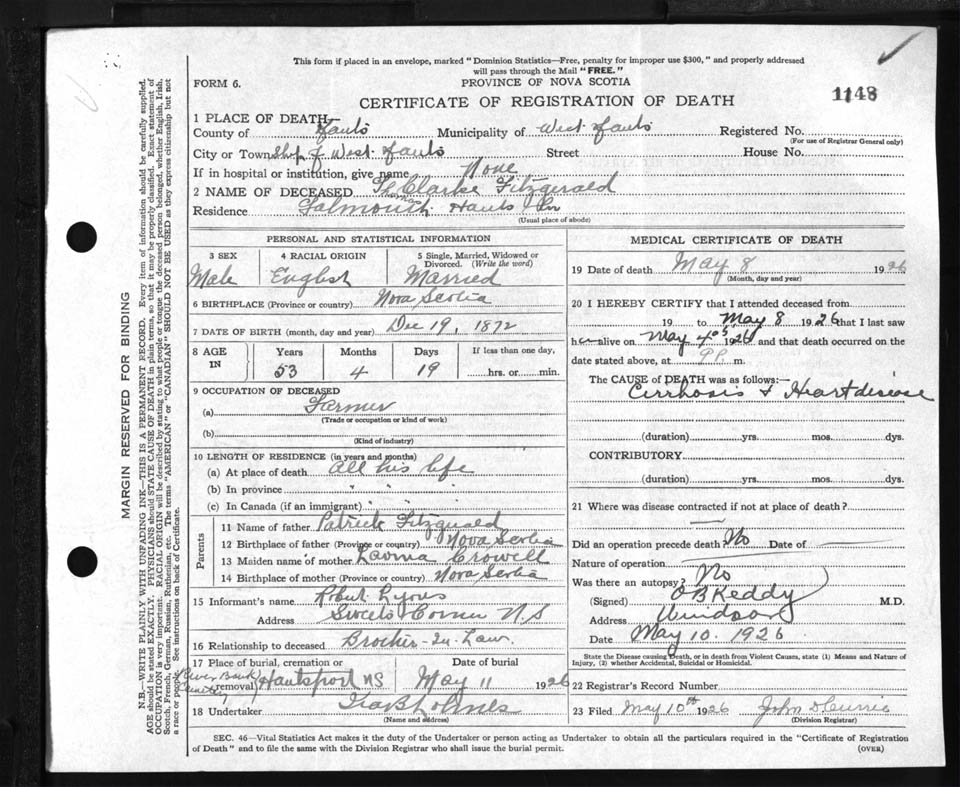 This form if placed in an envelope, marked "Dominion Statistics—Free, penalty for improper use $300," and properly addressed
will pass through the Mail "FREE."
FORM 6.
PROVINCE OF NOVA SCOTIA
CERTIFICATE OF REGISTRATION OF DEATH
1148
1 PLACE OF DEATH—
County of Hants Municipality of West Hants Registered No.
(For use of Registrar General only)
City or Town of West Hants Street House No.
If in hospital or institution, give name None
2 NAME OF DECEASED Clarke Fitzgerald
Residence Falmouth Hants Co
(Usual place of abode)
PERSONAL AND STATISTICAL INFORMATION
3 SEX Male
4 RACIAL ORIGIN English
5 Single, Married, Widowed or Divorced. (Write the word) Married
6 BIRTHPLACE (Province or country) Nova Scotia
7 DATE OF BIRTH (month, day and year) Dec 19, 1872
8 AGE IN Years 53 Months 4 Days 19 If less than one day, hrs. or min.
9 OCCUPATION OF DECEASED
(a) Farmer
(Trade or occupation or kind of work)
(b)
(Kind of industry)
10 LENGTH OF RESIDENCE (in years and months)
(a) At place of death all his life
(b) In province " " "
(c) In Canada (if an immigrant) " " "
Parents
11 Name of father Patrick Fitzgerald
12 Birthplace of father (Province or country) Nova Scotia
13 Maiden name of mother Crowell
14 Birthplace of mother (Province or country) Nova Scotia
15 Informant's name Robert Lyons
Address Sweets Corner N.S
16 Relationship to deceased Brother-In-Law
17 Place of burial, cremation or removal River Bank Cemetery Hantsport NS
Date of burial May 11 1926
18 Undertaker
(Name and address)
MEDICAL CERTIFICATE OF DEATH
19 Date of death May 8 1926
(Month, day and year)
20 I HEREBY CERTIFY that I attended deceased from
19 to May 8 1926 that I last saw
h alive on May 1926 and that death occurred on the
date stated above, at m.
The CAUSE of DEATH was as follows:
Cirrhosis & Heart disease
(duration) yrs. mos. dys.
CONTRIBUTORY
(duration) yrs. mos. dys.
21 Where was disease contracted if not at place of death?
Did an operation precede death? No Date of
Nature of operation
Was there an autopsy? No
(Signed) O B Keddy M.D.
Address Windsor
Date May 10. 1926
State the Disease causing Death, or in death from Violent Causes, state (1) Means and Nature of
Injury, (2) whether Accidental, Suicidal or Homicidal.
22 Registrar's Record Number
23 Filed May 10th 1926
(Division Registrar)
SEC. 46—Vital Statistics Act makes it the duty of the Undertaker or person acting as Undertaker to obtain all the particulars required in the "Certificate of Registration
of Death" and to file the same with the Division Registrar who shall issue the burial permit.
(OVER)
MARGIN RESERVED FOR BINDING
N.B.—WRITE PLAINLY WITH UNFADING INK—THIS IS A PERMANENT RECORD. Every item of information should be carefully supplied.
AGE should be stated EXACTLY. PHYSICIANS should STATE CAUSE OF DEATH in plain terms, so that it may be properly classified. Exact statement of
OCCUPATION is very important. RACIAL ORIGIN will be described by stating to what people or tongue the deceased person belonged, whether English, Irish,
Scotch, French, German, Russian, Ruthenian, etc. The terms "AMERICAN" or "CANADIAN" SHOULD NOT BE USED as they express citizenship but not
a race or people. See instructions on back of Certificate.